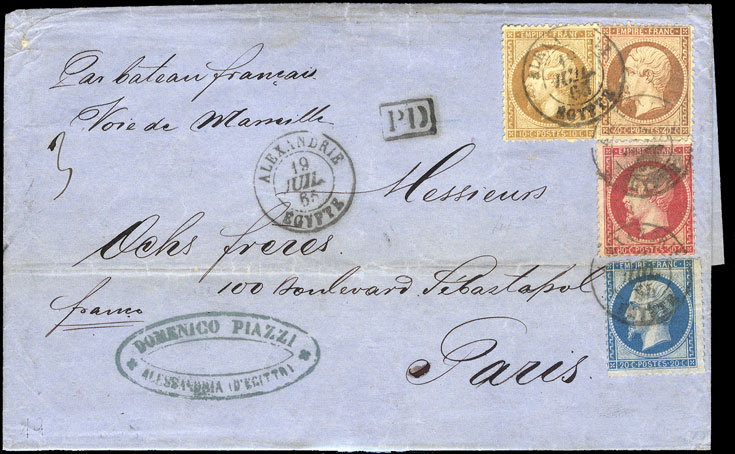 Par bateau français
Voie de Marseille
PD
3
ALEXANDRIE
19
JUIL
65
EGYPTE
Messieurs
Ochs freres
100 Boulevard Sébastopol
franco
Paris.
DOMENICO PIAZZI
ALESSANDRIA (D'EGITTO)
EMPIRE FRANC
10 C POSTES 10 C
JUIL
EGYPTE
EMPIRE FRANC
40 C POSTES 40 C
EMPIRE FRANC
80 C POSTES 80 C
EMPIRE FRANC
20 C POSTES 20 C
JUIL
65
EGYPTE